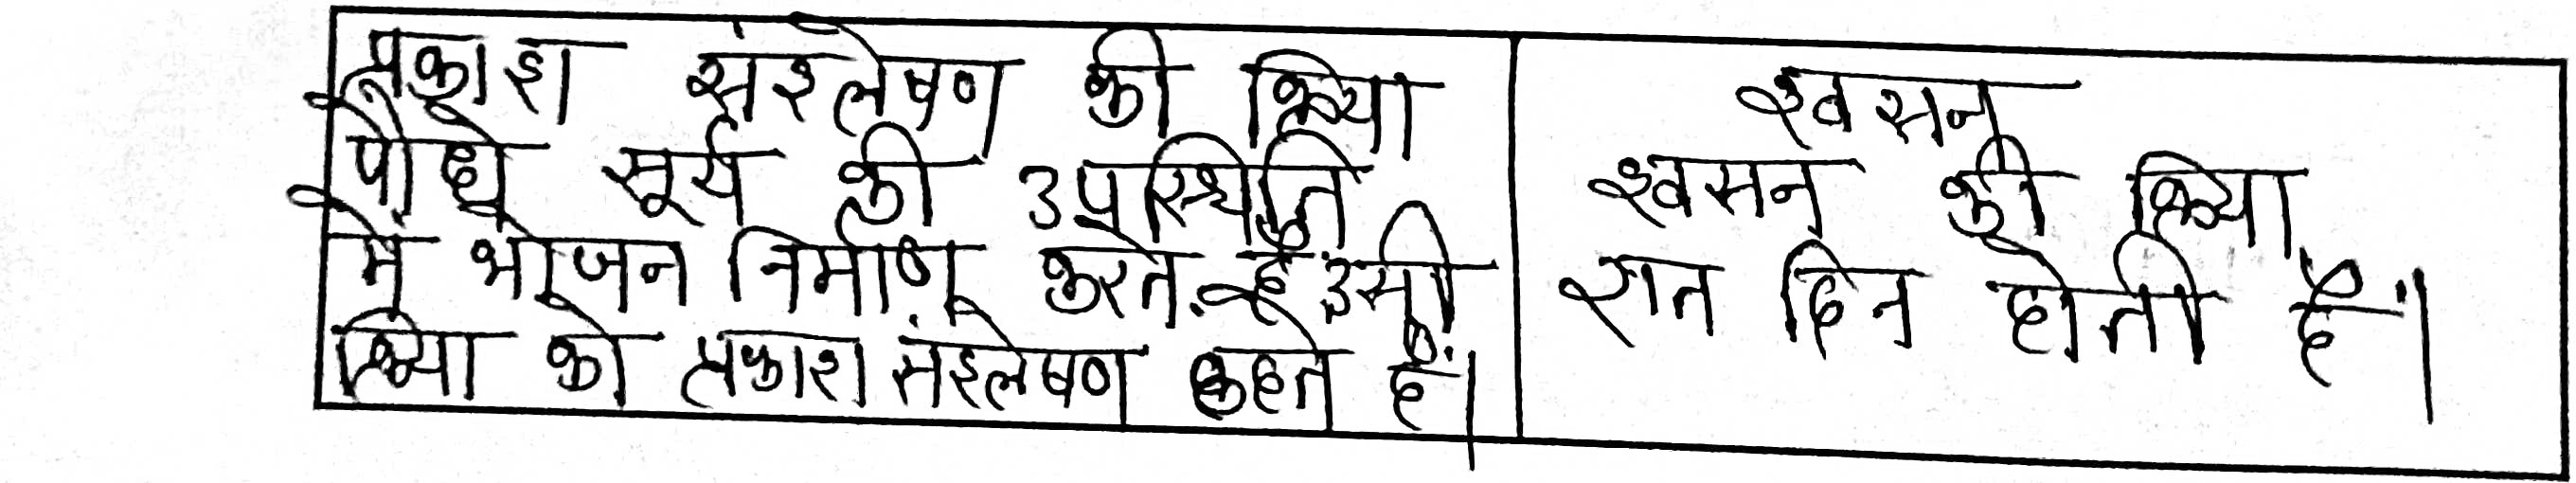 प्रकाश संश्लेषण की क्रिया
पौधे सूर्य की उपस्थिति
में भोजन निर्माण करते हैं उसी
क्रिया को प्रकाश संश्लेषण कहते हैं।
श्वसन
श्वसन की क्रिया
रात दिन होती हैं।